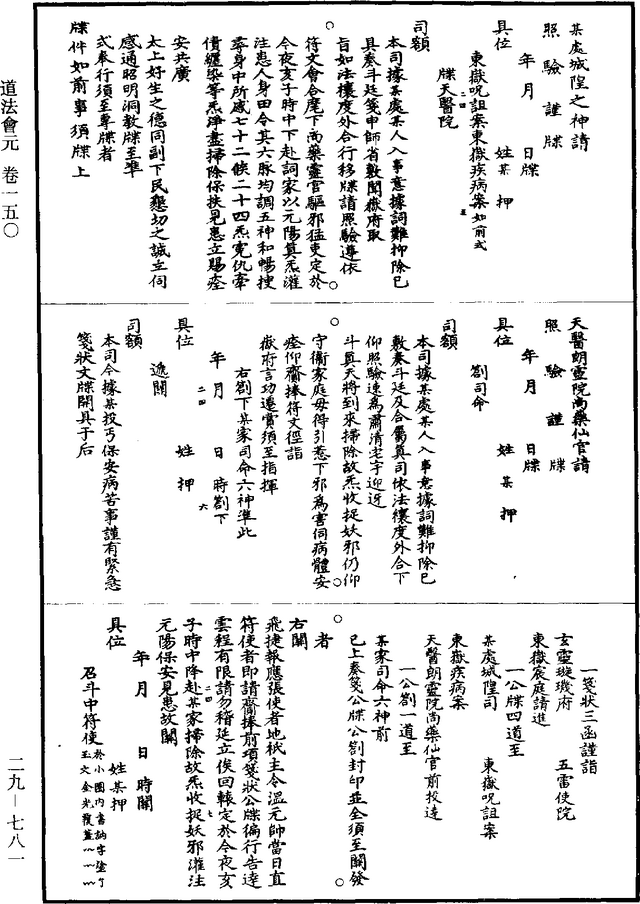 某處城隍之神請
照驗謹牒
年月日牒
具位姓某押
東嶽呪詛案東嶽疾病案如前式
牒天醫院
司額
本司據某處某人入事意據詞難抑除已
具奏斗廷箋申師省敷聞嶽府取
旨如法禳度外合行移牒請照驗遵依
符文會合麾下尚藥靈官驅邪猛吏定於
今夜亥子時中下赴詞家以元陽真炁灌
注患人身田令其六脉均調五神和暢搜
尋身中所感七十二候二十四炁冤仇牽
債纏染等炁淨盡掃除保扶見患立賜痊
安共廣
太上好生之德同副下民懇切之誠立伺
感通昭明洞敷牒至準
式奉行須至專牒者
牒件如前事須牒上
天醫朗靈院尚藥仙官請
照驗謹牒
年月日牒
具位姓某押
劄司命
司額
本司據某處某人入事意據詞難抑除已
敷奏斗廷及合屬真司依法禳度外合下
仰照驗速為肅清宅宇迎近
斗真天將到來掃除故炁收捉妖邪仍仰
守衛家庭毋得引惹下邪為害伺病體安
痊仰齎捧符文徑詣
嶽府言功遷賞須至指揮
右劄下某家司命六神準此
年月日時劄下
具位姓押
遞關
司額
本司今據某投丐保安病苦事謹有緊急
箋狀文牒開具于后
一箋狀三函謹詣
玄靈璇璣府五雷使院
東嶽宸庭請進
一公牒四道至
某處城隍司東嶽呪詛案
東嶽疾病案
天醫朗靈院尚藥仙官前投達
一公劄一道至
某家司命六神前
已上奏箋公牒公劄封印並全須至關發
者
右關
飛捷報應張使者地祇主令溫元帥當日直
符使者即請齎捧前項箋狀公牒徧行告達
雲程有限請勿稽延立俟回轅定於今夜亥
子時中降赴某家掃除故炁收捉妖邪灌注
元陽保安見患故關
年月日時關
具位姓某押
召斗中符使
道法會元卷一五〇
二九—七八一